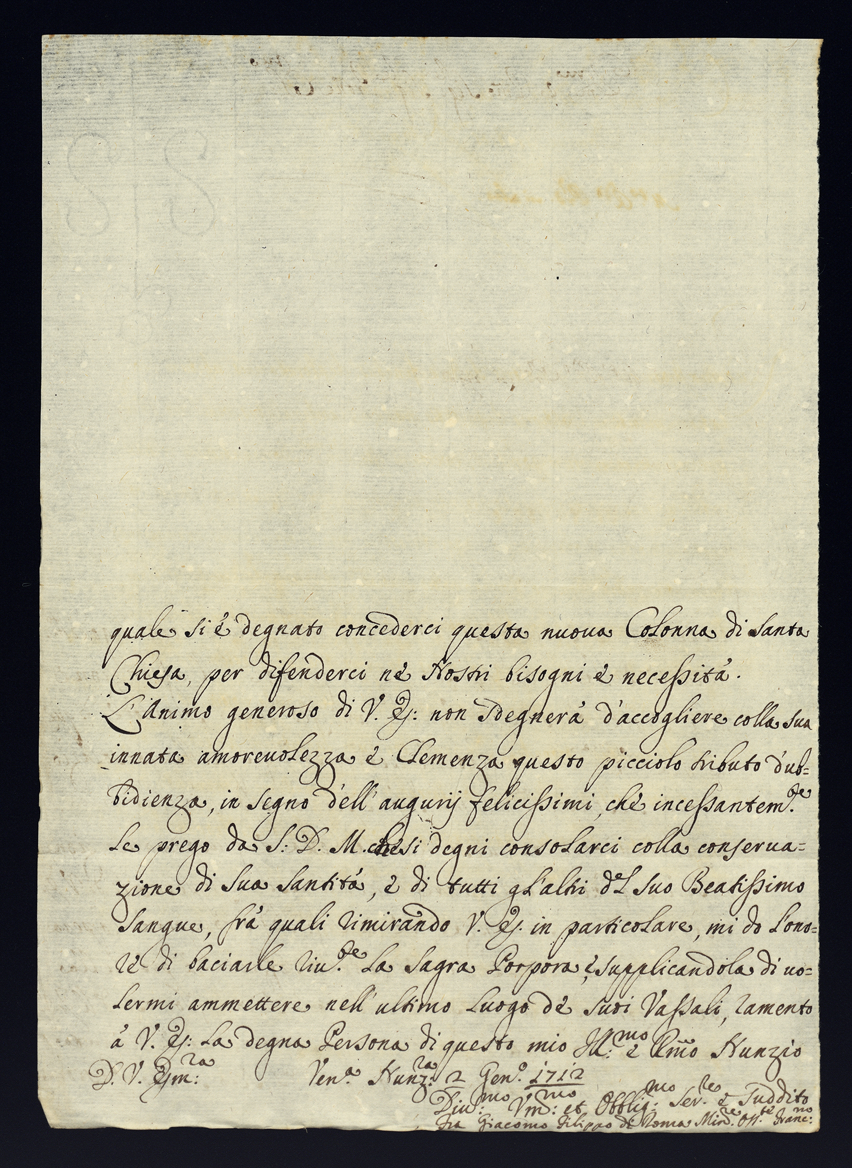 quale si è degnato concederci questa nuova Colonna di Santa
Chiesa, per difenderci nè Nostri bisogni è necessità.
L'Animo generoso di V. Ej: non sdegnerà d'accogliere colla sua
innata amorevolezza è Clemenza questo picciolo tributo d'ub=
bidienza, in segno dell' augurij felicissimi, che incessantem.te
le prego da S: D. M. che si degni consolarci colla conserva=
zione di Sua Santità, è di tutti gl'altri del suo Beatissimo
Sangue, frà quali rimirando V. Ej. in particolare, mi do l'ono=
re di baciarle riv.te la Sagra Porpora è, supplicandola di vo=
lermi ammettere nell' ultimo luogo dè Suoi Vassali, ramento
à V. Ej: la degna Persona di questo mio Ill:mo è Rmo Nunzio
D. V. Ejm:za Ven.a Nunz:ra 2 Gen.o 1712
Div:mo Vm:mo et Obblig:mo Ser.re è Suddito
fra Giacomo Filippo di Roma Min.e Oss.te Franc:no